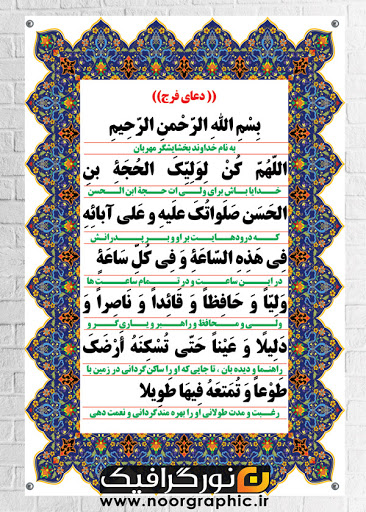 (( دعای فرج))
بِسْمِ اللهِ الرَّحْمنِ الرَّحِیمِ
به نام خداوند بخشایشگر مهربان
اللّهُمَّ کُنْ لِوَلِیِّکَ الحُجَةِ بنِ
خدایا باش برای ولی ات حجة ابن الحسن
الحَسَن صَلَواتُکَ عَلَیهِ و عَلی آبائِهِ
که درودهایت بر او و بر پدرانش
فِی هَذِهِ السَّاعَةِ وَ فِی کُلِّ سَاعَةٍ
در این ساعت و در تمام ساعت ها
وَلِیّاً وَ حَافِظاً وَ قَائِداً وَ نَاصِراً وَ
ولی و محافظ و راهبر و یاری گر و
دَلِیلًا وَ عَیْناً حَتَّی تُسْکِنَهُ أَرْضَکَ
راهنما و دیده بان ، تا جایی که او را ساکن گردانی در زمین با
طَوْعاً وَ تُمَتِّعَهُ فِیهَا طَوِیلا
رغبت و مدت طولانی او را بهره مند گردانی و نعمت دهی
نورگرافیک
www.noorgraphic.ir